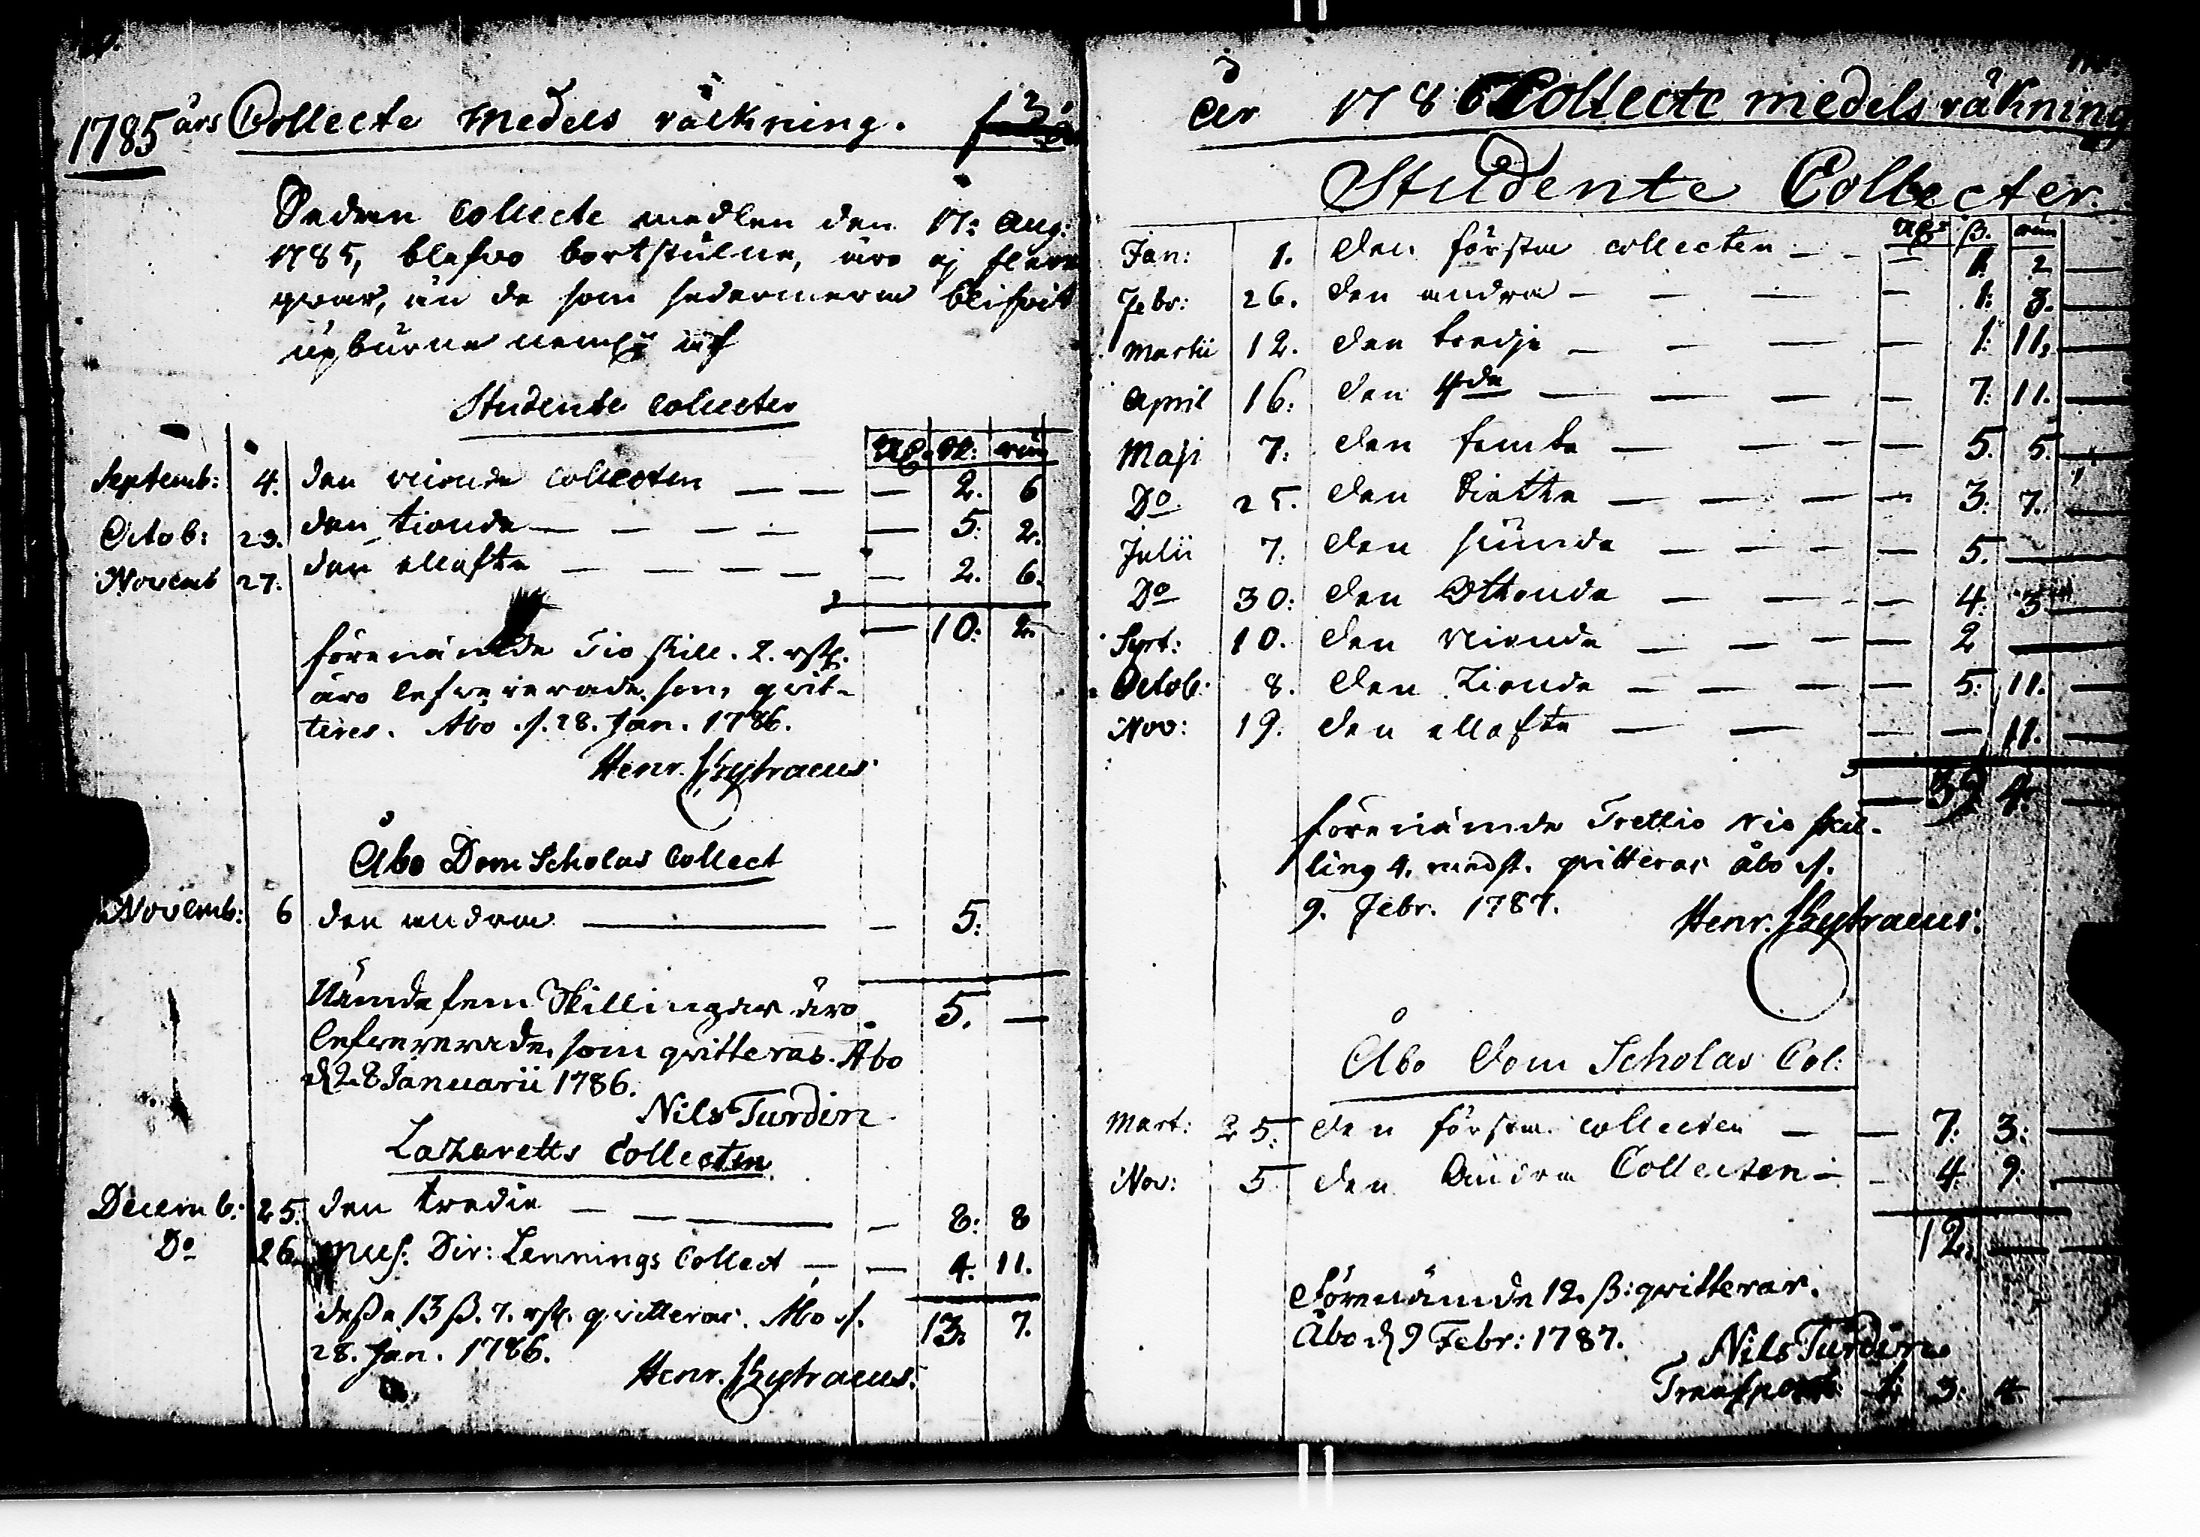 1785 års Collecte medels räkning.
Sedan Collecte medlen den 17: Aug:
1785, blefvo bortstulne, äro ej flere
qvar, än de som sedermera blifvit
upburne neml: af
Studente Collecter
Rd. sk: run
Septemb: 4. den niionde Collecten — — — 2. 6
Octob: 23. den tionde — — — — — 5. 2.
Novemb 27. den ellofte — — — — — 2. 6.
— 10: 2.
förenämde Tio skill. 2. rst.
äro lefvererade, som qvit-
teres. Åbo d. 28. Jan. 1786.
Henr. Skytraeus.
Åbo Dom Scholas Collect
Novemb: 6 den andra — — 5:
Nämde fem Skillingar äro 5. —
lefvererade, som qvitteras. Åbo
d 28 Januarii 1786.
Nils Turdin
Lazaretts Collecten
Decemb: 25. den tredie — — — — 8: 8
Do 26. Mus. Dir: Lennings Collect — — 4. 11.
deße 13 ß. 7. rst. qvitteras. Åbo d. 13. 7.
28. Jan. 1786.
Henr. Skytraeus.
År 1786 Collecte medels räkning
Studente Collecter.
Rd ß. run
Jan: 1. den första Collecten — — — 1: 2 —
Febr: 26. den andra — — — — 1: 3. —
Martii 12. den tredje — — — — 1: 11. —
April 16. den 4de — — — — 7: 11. —
Maji 7. den femte — — — — 5. 5. —
Do 25. den Siette — — — — 3. 7. —
Julii 7. den siunde — — — — 5. —
Do 30: den Ottonde — — — 4: 3 —
Sept: 10. den Nionde — — — — 2 —
Octob. 8. den Tionde — — — — 5: 11. —
Nov: 19. den ellofte — — — — 11. —
— 39 4. —
förenämde Trettio Nio skil-
ling 4. rundst. qvitteras Åbo d.
9. Febr. 1787.
Henr. Skytraeus.
Åbo Dom Scholas Col:
Mart: 25. den första Collecten — — 7: 3: —
Nov: 5 den Andra Collecten — — 4. 9. —
12. — —
Förenämde 12. ß: qvitteras.
Åbo d 9 Febr: 1787.
Nils Turdin
Transport: 1: 3: 4. —